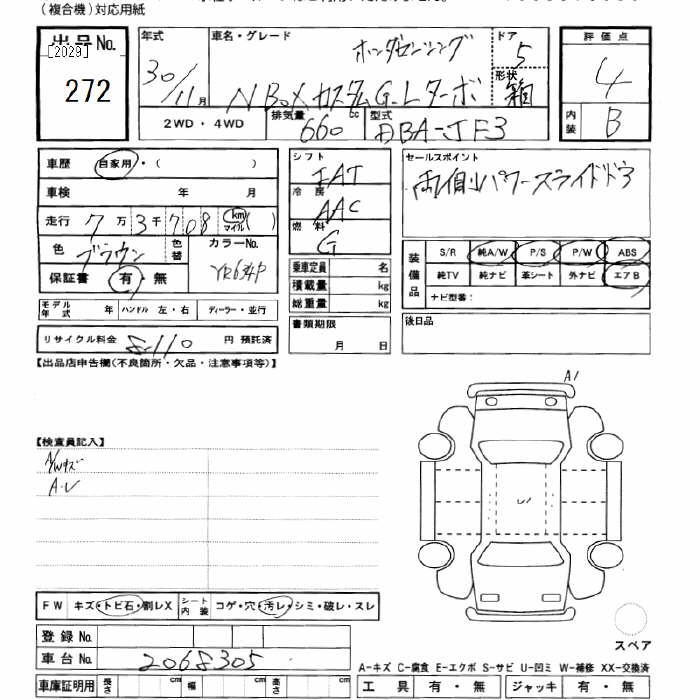 (複合機)対応用紙
出品No.
[2029]
272
年式
30/11月
車名・グレード
ホンダセンシング
N BOXカスタム G・Lターボ
ドア
5
形状
箱
2WD・4WD
排気量
660 cc
型式
DBA-JF3
評価点
4
内装
B
車歴 自家用・( )
車検 年 月
走行 7万3千708 km マイル ( )
色 ブラウン 色替
カラーNo.
YR634P
保証書 有・無
モデル年式 年 ハンドル 左・右 ディーラー・並行
リサイクル料金 8110 円 預託済
シフト
IAT
冷房
AAC
燃料
G
乗車定員 名
積載量 kg
総重量 kg
書類期限
月 日
セールスポイント
両側パワースライドドア
装備品
S/R 純A/W P/S P/W ABS
純TV 純ナビ 革シート 外ナビ エアB
ナビ型番:
後日品
【出品店申告欄(不良箇所・欠品・注意事項等)】
【検査員記入】
A/Wキズ
A・レ
A1
レ1
スペア
FW キズ・トビ石・割レX シート内装 コゲ・穴・汚レ・シミ・破レ・スレ
登録No.
車台No. 2068305
車庫証明用 長さ cm 幅 cm 高さ cm
A-キズ C-腐食 E-エクボ S-サビ U-凹ミ W-補修 XX-交換済
工具 有・無 ジャッキ 有・無